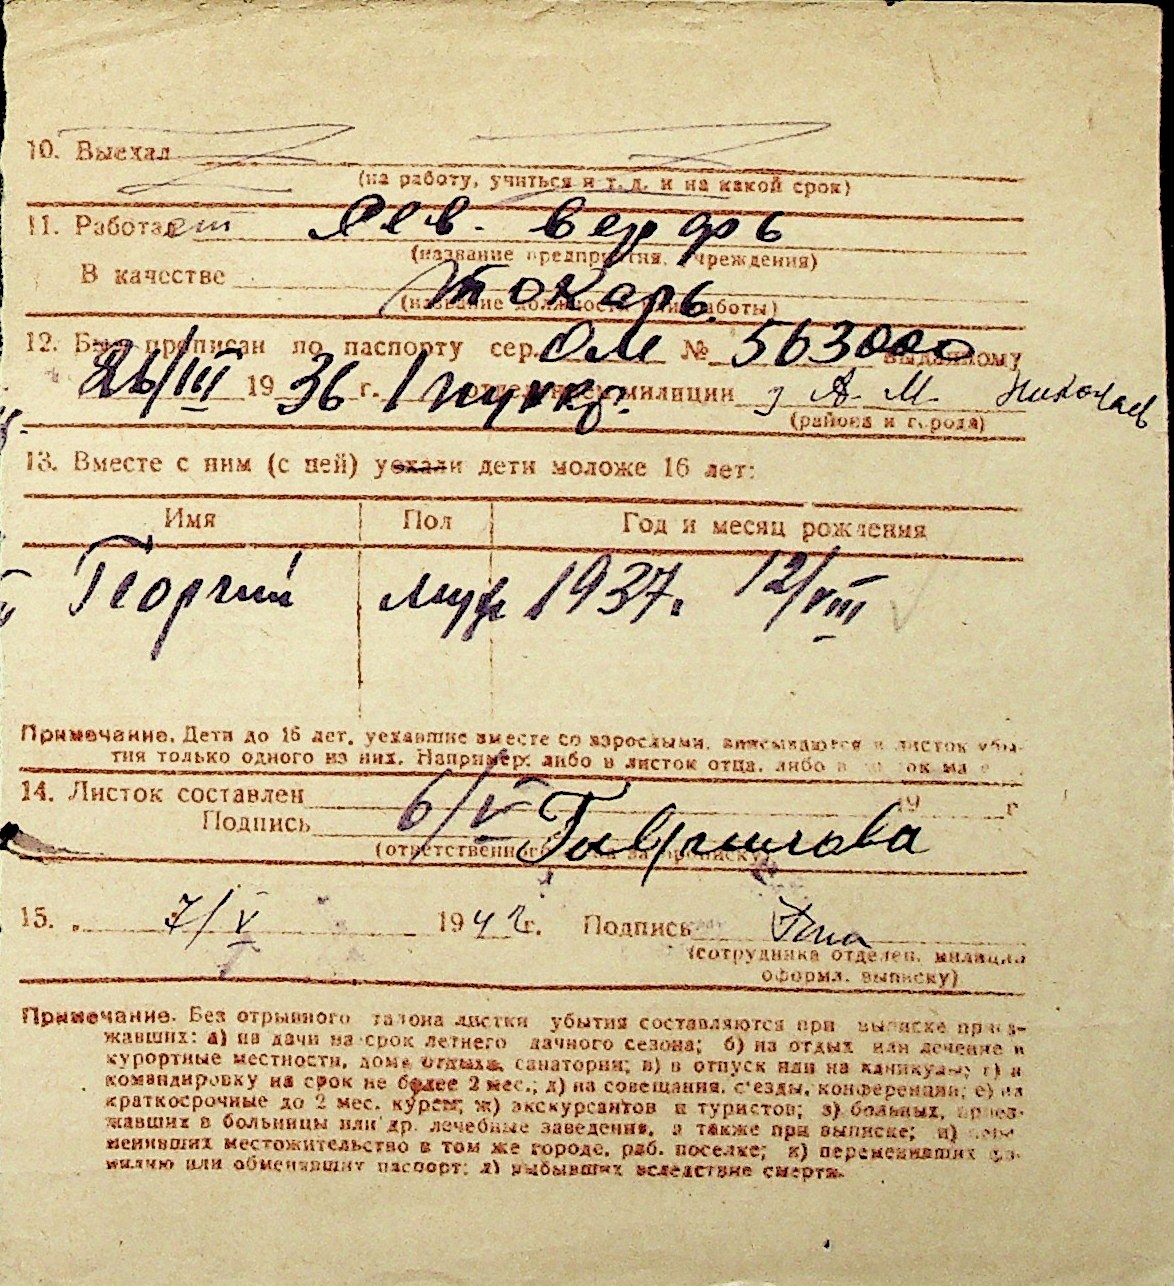 10. Выехал
(на работу, учиться и т. д. и на какой срок)
11. Работает Сев. верфь
(название предприятия, учреждения)
В качестве Токарь
(название должности или работы)
12. Был прописан по паспорту сер. ОМ № 563000 выданному
26/III 19 36 г. 1 отделением милиции г А. М. Николаев
(района и города)
13. Вместе с ним (с ней) уехали дети моложе 16 лет:
Имя Пол Год и месяц рождения
Георгий муж 1937. 12/VIII
Примечание. Дети до 16 лет, уехавшие вместе со взрослыми, вписываются в листок убы-
тия только одного из них. Например: либо в листок отца, либо в листок ма
14. Листок составлен 6/V 19 г
Подпись Гаврилова
(ответственного за прописку)
15. „ 7/V 1942 г. Подпись
(сотрудника отделен. милиции
оформл. выписку)
Примечание. Без отрывного талона листки убытия составляются при выписке приез-
жавших: а) на дачи на срок летнего дачного сезона; б) на отдых или лечение в
курортные местности, дома отдыха, санатории; в) в отпуск или на каникулы; г) в
командировку на срок не более 2 мес.; д) на совещания, с'езды, конференции; е) на
краткосрочные до 2 мес. курсы; ж) экскурсантов и туристов; з) больных, приез-
жавших в больницы или др. лечебные заведения, а также при выписке; и) пере-
менивших местожительство в том же городе, раб. поселке; к) переменивших фа-
милию или обменявших паспорт; л) выбывших вследствие смерти.